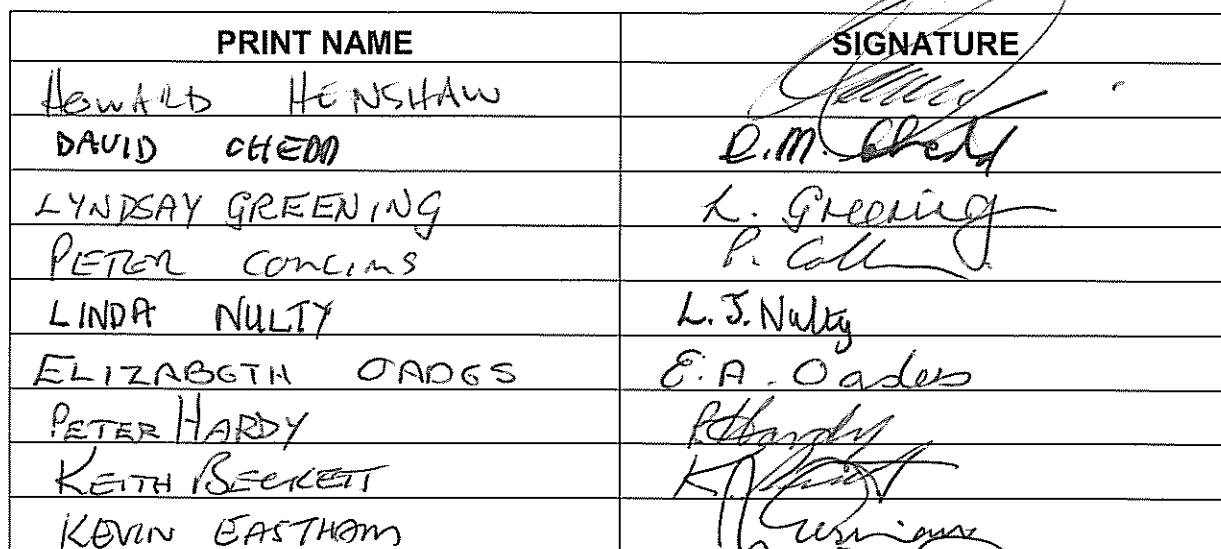 PRINT NAME SIGNATURE
HOWARD HENSHAW
DAVID CHEDD D.M. Chedd
LYNDSAY GREENING L. Greening
PETER COLLINS P. Coll
LINDA NULTY L. J. Nulty
ELIZABETH OADES E. A. Oades
PETER HARDY P. Hardy
KEITH BECKETT K
KEVIN EASTHAM